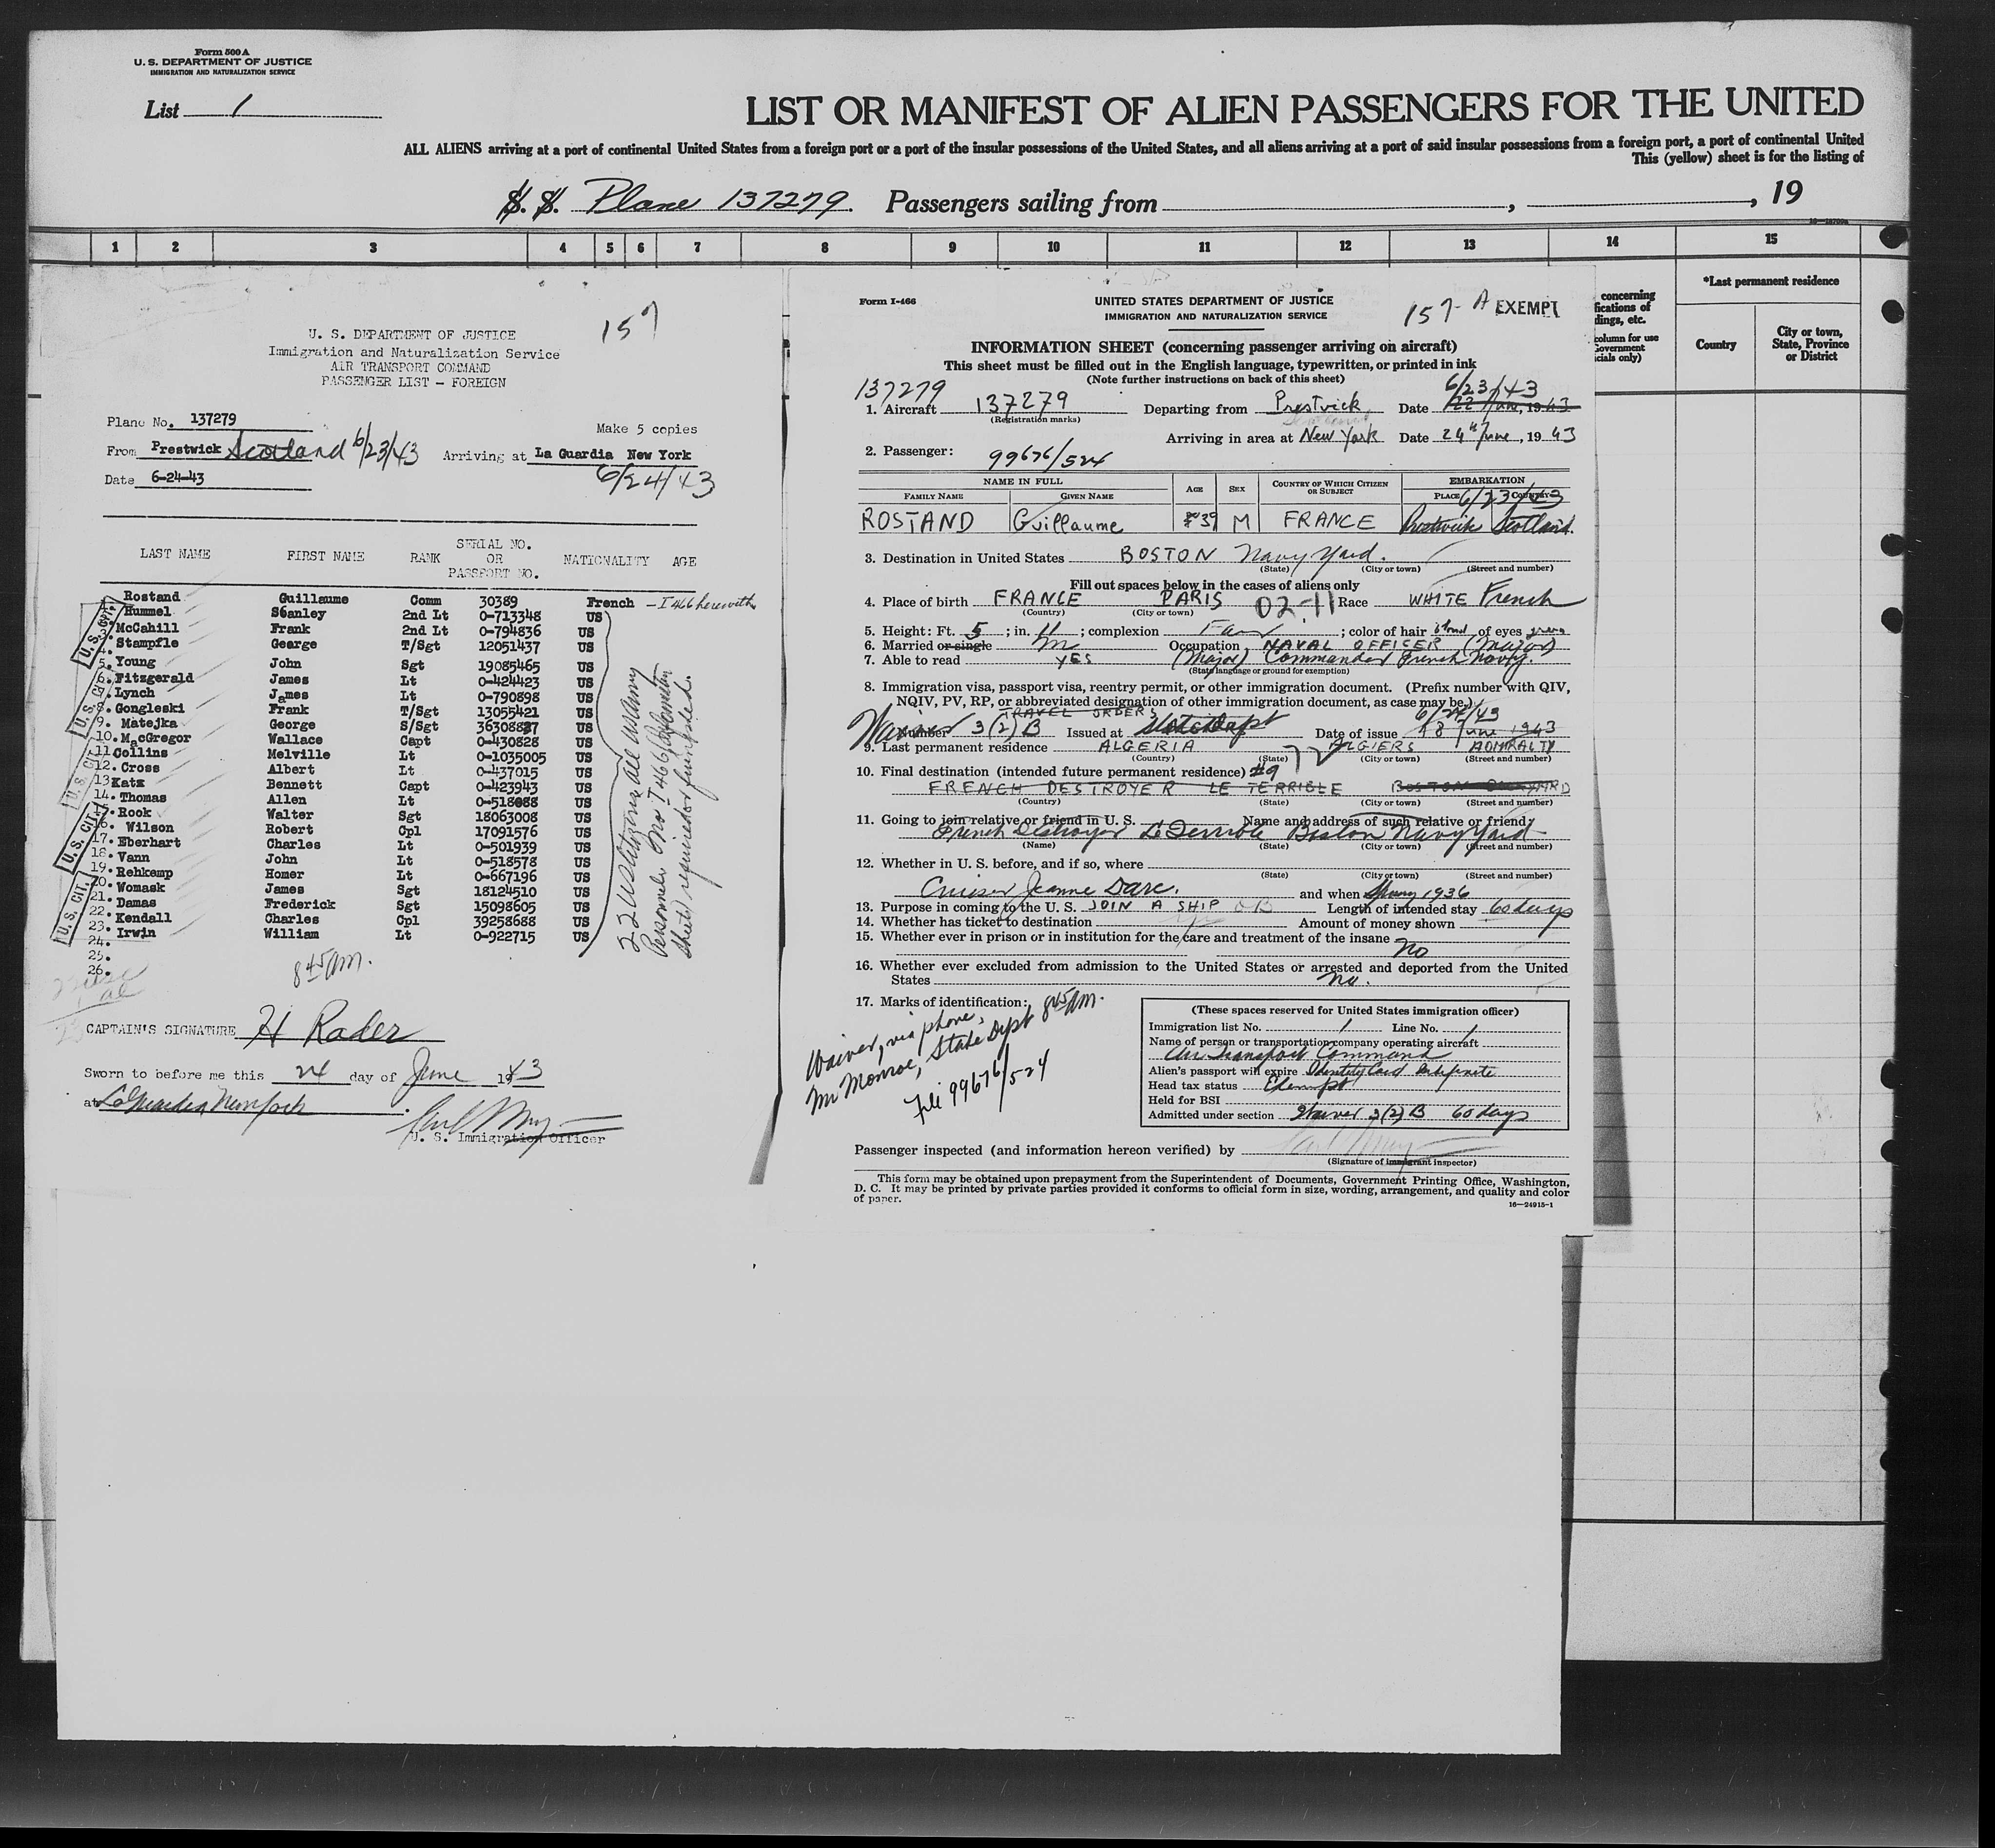 Form 500 A
U. S. DEPARTMENT OF JUSTICE
IMMIGRATION AND NATURALIZATION SERVICE
List 1
LIST OR MANIFEST OF ALIEN PASSENGERS FOR THE UNITED
ALL ALIENS arriving at a port of continental United States from a foreign port or a port of the insular possessions of the United States, and all aliens arriving at a port of said insular possessions from a foreign port, a port of continental United
This (yellow) sheet is for the listing of
S. S. Plane 137279. Passengers sailing from , , 19
1 2 3 4 5 6 7 8 9 10 11 12 13 14 15
157
U. S. DEPARTMENT OF JUSTICE
Immigration and Naturalization Service
AIR TRANSPORT COMMAND
PASSENGER LIST - FOREIGN
Plane No. 137279
Make 5 copies
From Prestwick Scotland 6/23/43 Arriving at La Guardia New York
Date 6-24-43 6/24/43
LAST NAME FIRST NAME RANK SERIAL NO. OR PASSPORT NO. NATIONALITY AGE
Rostand Guillaume Comm 30389 French - I 466 herewith
Hummel Stanley 2nd Lt 0-713348 US
3. McCahill Frank 2nd Lt 0-794836 US
4. Stampfle George T/Sgt 12051437 US
5. Young John Sgt 19085465 US
6. Fitzgerald James Lt 0-424423 US
7. Lynch James Lt 0-790898 US
8. Gongleski Frank T/Sgt 13055421 US
9. Matejka George S/Sgt 36308887 US
10. MacGregor Wallace Capt 0-430828 US
11. Collins Melville Lt 0-1035005 US
12. Cross Albert Lt 0-437015 US
13. Katz Bennett Capt 0-423943 US
14. Thomas Allen Lt 0-518088 US
15. Rook Walter Sgt 18063008 US
16. Wilson Robert Cpl 17091576 US
17. Eberhart Charles Lt 0-501939 US
18. Vann John Lt 0-518578 US
19. Rehkemp Homer Lt 0-667196 US
20. Womask James Sgt 18124510 US
21. Damas Frederick Sgt 15098605 US
22. Kendall Charles Cpl 39258688 US
23. Irwin William Lt 0-922715 US
24.
25.
26.
U. S. CIT.
U. S. CIT.
U. S. CIT.
U. S. CIT.
U. S. CIT.
22 US Citizens all US Army
Personnel. No I 466 (Information
Sheets) required or furnished.
8 45 AM.
CAPTAIN'S SIGNATURE H Rader
Sworn to before me this 24 day of June 1943
at La Guardia New York.
U. S. Immigration Officer
Form I-466
UNITED STATES DEPARTMENT OF JUSTICE
IMMIGRATION AND NATURALIZATION SERVICE
157-A EXEMPT
INFORMATION SHEET (concerning passenger arriving on aircraft)
This sheet must be filled out in the English language, typewritten, or printed in ink
(Note further instructions on back of this sheet)
137279 6/23/43
1. Aircraft 137279 Departing from Prestwick Date 22 June, 1943
(Registration marks)
Arriving in area at New York Date 24th June, 1943
2. Passenger: 99676/524
NAME IN FULL AGE SEX COUNTRY OF WHICH CITIZEN OR SUBJECT EMBARKATION
FAMILY NAME GIVEN NAME PLACE COUNTRY 6/23/43
ROSTAND Guillaume 39 M FRANCE Prestwick Scotland.
3. Destination in United States BOSTON Navy Yard.
(State) (City or town) (Street and number)
Fill out spaces below in the cases of aliens only
4. Place of birth FRANCE PARIS 02-11 Race WHITE French
(Country) (City or town)
5. Height: Ft. 5; in. 11; complexion Fair; color of hair blond of eyes green
6. Married or single m Occupation NAVAL OFFICER (Major)
7. Able to read YES (Major) Commander French Navy.
(State language or ground for exemption)
8. Immigration visa, passport visa, reentry permit, or other immigration document. (Prefix number with QIV,
NQIV, PV, RP, or abbreviated designation of other immigration document, as case may be.)
TRAVEL ORDERS 6/24/43
Waiver Number 3(2)B Issued at State Dept Date of issue 18 June 1943
9. Last permanent residence ALGERIA ALGIERS ADMIRALTY
(Country) (State) (City or town) (Street and number)
10. Final destination (intended future permanent residence) #9
FRENCH DESTROYER LE TERRIBLE
(Country) (State) (City or town) (Street and number)
11. Going to join relative or friend in U. S. Name and address of such relative or friend
French Destroyer Le Terrible Boston Navy Yard
(Name) (State) (City or town) (Street and number)
12. Whether in U. S. before, and if so, where
(State) (City or town) (Street and number)
Cruiser Jeanne Darc. and when Spring 1936
13. Purpose in coming to the U. S. JOIN A SHIP Length of intended stay 60 days
14. Whether has ticket to destination yes Amount of money shown
15. Whether ever in prison or in institution for the care and treatment of the insane No
16. Whether ever excluded from admission to the United States or arrested and deported from the United
States No.
17. Marks of identification:
8 45 AM.
Waiver, via phone,
Mr Monroe, State Dept
File 99676/524
(These spaces reserved for United States immigration officer)
Immigration list No. 1 Line No. 1
Name of person or transportation company operating aircraft
Air Transport Command
Alien's passport will expire Identity Card Indefinite
Head tax status Exempt
Held for BSI
Admitted under section Waiver 3(2) B 60 days
Passenger inspected (and information hereon verified) by
(Signature of immigrant inspector)
This form may be obtained upon prepayment from the Superintendent of Documents, Government Printing Office, Washington,
D. C. It may be printed by private parties provided it conforms to official form in size, wording, arrangement, and quality and color
of paper.
16—24915-1
concerning
fications of
dings, etc.
column for use
Government
icials only)
*Last permanent residence
Country
City or town,
State, Province
or District